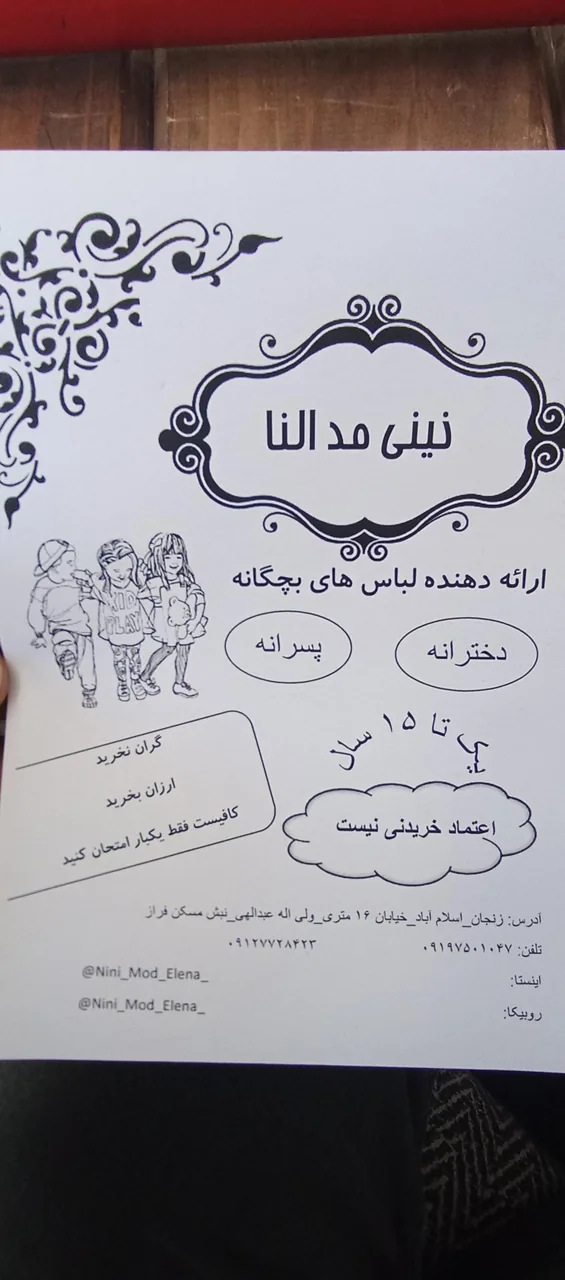 نینی مد النا
ارائه دهنده لباس های بچگانه
دخترانه
پسرانه
KID
PLAY
یک تا ۱۵ سال
اعتماد خریدنی نیست
گران نخرید
ارزان بخرید
کافیست فقط یکبار امتحان کنید
آدرس: زنجان_اسلام آباد_خیابان ۱۶ متری_ولی اله عبدالهی_نبش مسکن فراز
تلفن: ۰۹۱۹۷۵۰۱۰۴۷ ۰۹۱۲۷۷۲۸۴۲۳
اینستا: @Nini_Mod_Elena_
روبیکا: @Nini_Mod_Elena_